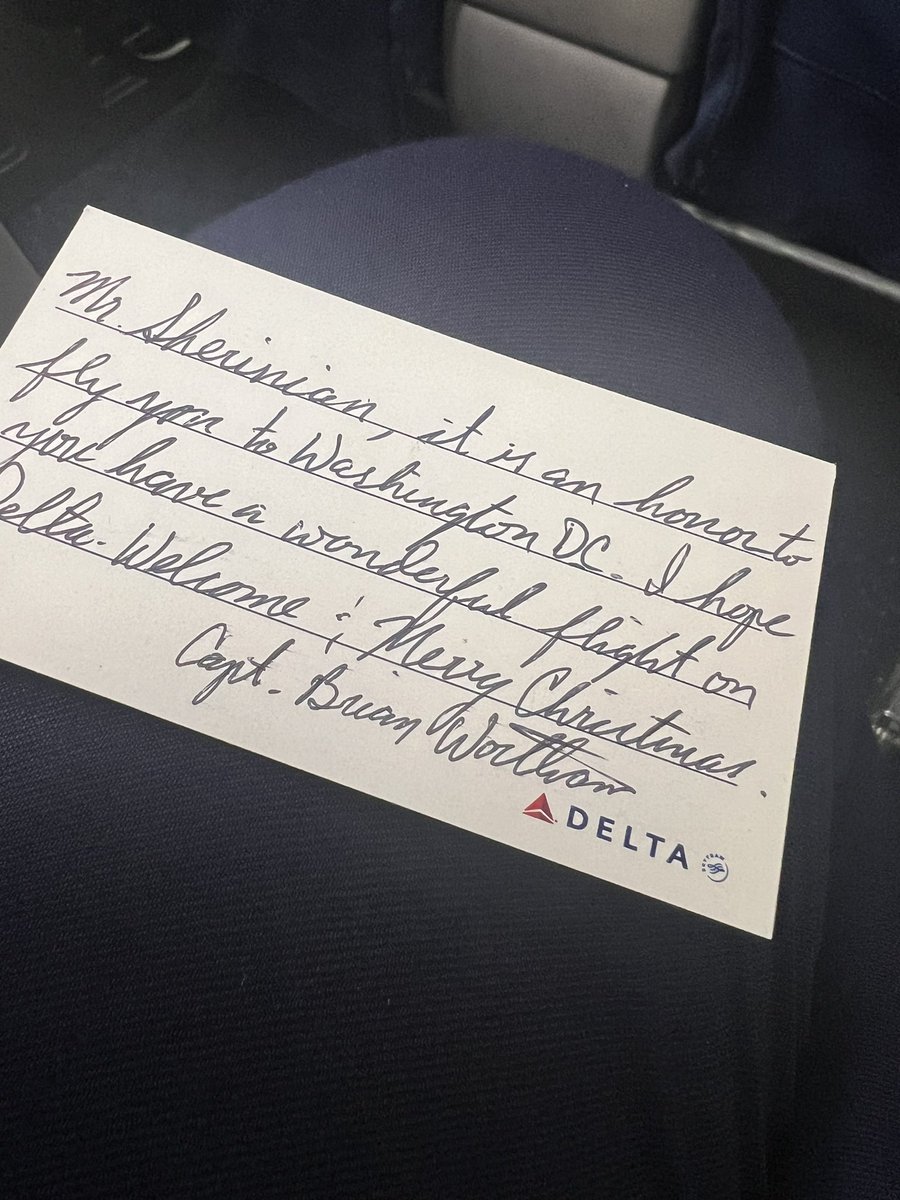 Mr. Sherinian, it is an honor to
fly you to Washington DC. I hope
you have a wonderful flight on
Delta. Welcome & Merry Christmas.
Capt. Brian Worthan
DELTA
SKYTEAM